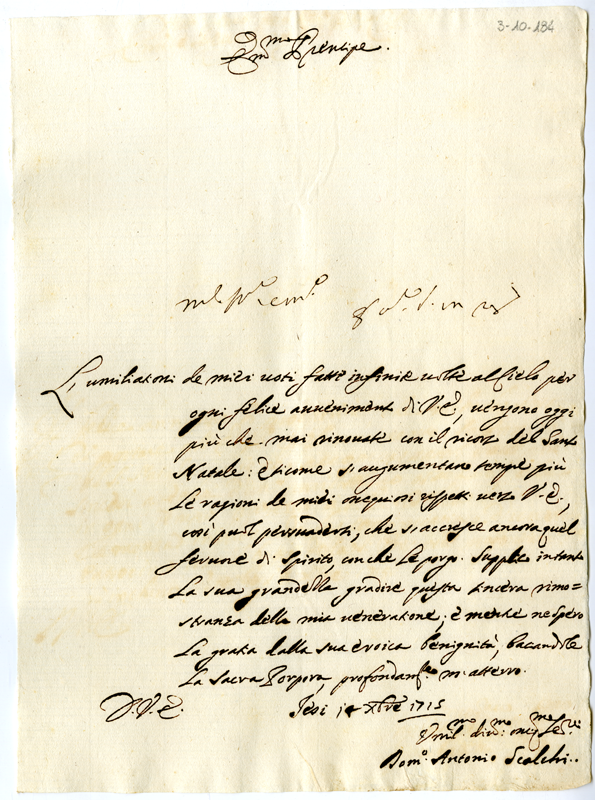 3-10-184
Em.mo Prencipe.
L'umiliationi de miei voti fatte infinite volte al Cielo per
ogni felice avvenimento di V. E., vengono oggi
più che mai rinovate con il ricorso del Santo
Natale: e sicome si augumentano sempre più
le ragioni de miei ossequiosi rispetti verso V. E.,
così può persuadersi, che si accresce ancora quel
fervore di spirito, con che le porgo. Supplico intanto
la sua grandezza gradire questa sincera rimo=
stranza della mia veneratione; e mentre ne spero
la gratia dalla sua eroica benignità, baciandole
la Sacra Porpora, profondam.te m'atterro.
D. V. E.
Jesi Xbre 1715
Umil.mo div.mo oss.mo Ser.re
Dom.o Antonio Scalchi